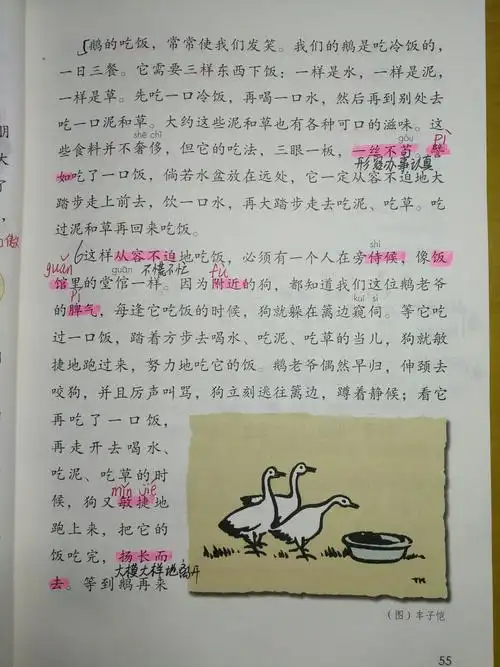 鹅的吃饭，常常使我们发笑。我们的鹅是吃冷饭的，
一日三餐。它需要三样东西下饭：一样是水，一样是泥，
一样是草。先吃一口冷饭，再喝一口水，然后再到别处去
吃一口泥和草。大约这些泥和草也有各种可口的滋味。这
shē chǐ
gǒu
pì
些食料并不奢侈，但它的吃法，三眼一板，一丝不苟。譬
形容办事认真
如吃了一口饭，倘若水盆放在远处，它一定从容不迫地大
踏步走上前去，饮一口水，再大踏步走去吃泥、吃草。吃
过泥和草再回来吃饭。
shì
6这样从容不迫地吃饭，必须有一个人在旁侍候，像饭
guǎn
guān
不慌不忙
fù
馆里的堂倌一样。因为附近的狗，都知道我们这位鹅老爷
pí
kuī sì
的脾气，每逢它吃饭的时候，狗就躲在篱边窥伺。等它吃
过一口饭，踏着方步去喝水、吃泥、吃草的当儿，狗就敏
捷地跑过来，努力地吃它的饭。鹅老爷偶然早归，伸颈去
咬狗，并且厉声叫骂，狗立刻逃往篱边，蹲着静候；看它
再吃了一口饭，
再走开去喝水、
吃泥、吃草的时
mǐn jié
候，狗又敏捷地
跑上来，把它的
饭吃完，扬长而
大模大样地离开
去。等到鹅再来
TK
（图）丰子恺
55